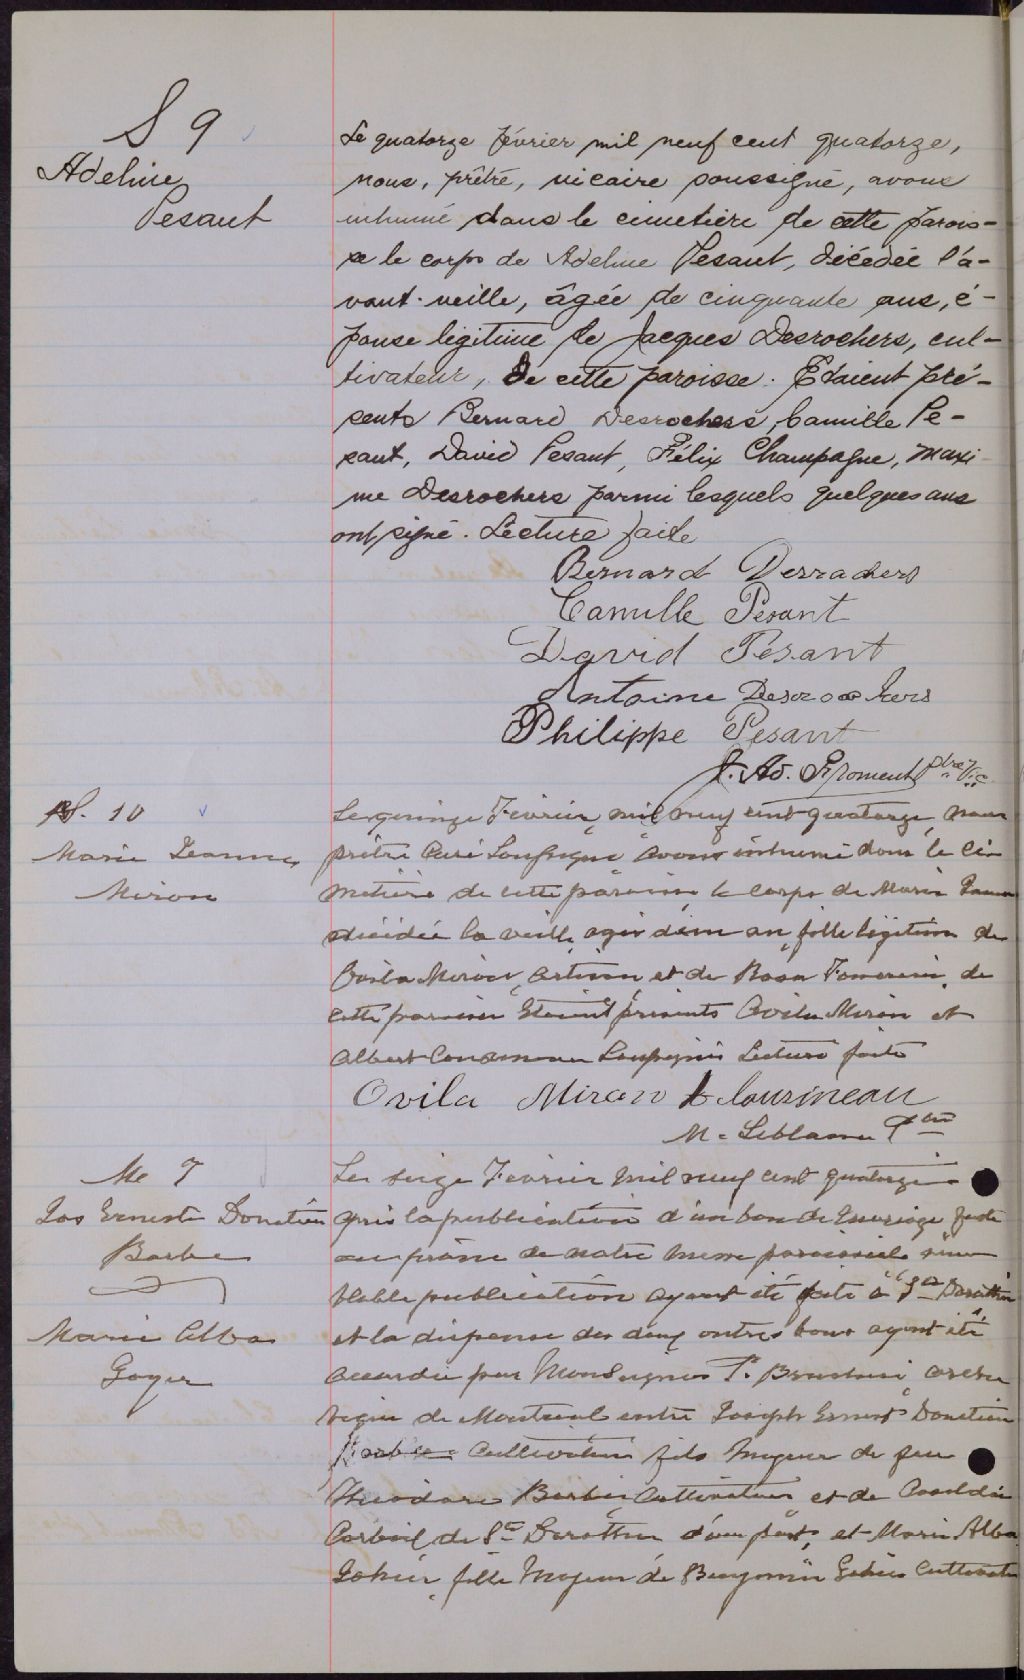 S 9
Adeline
Pesant
Le quatorze février mil neuf cent quatorze,
nous, prêtre, vicaire soussigné, avons
inhumé dans le cimetière de cette parois-
se le corps de Adeline Pesant, décédée l'a-
vant-veille, âgée de cinquante ans, é-
pouse légitime de Jacques Desrochers, cul-
tivateur, de cette paroisse. Etaient pré-
sents Bernard Desrochers, Camille Pe-
sant, David Pesant, Félix Champagne, Maxi-
me Desrochers parmi lesquels quelques uns
ont signé. Lecture faite
Bernard Desrochers
Camille Pesant
David Pésant
Antoine Desrochers
Philippe Pesant
J. Ad. Froment ptre Vic.
S. 10
Marie Jeanne
Miron
Le quinze Fevrier mil neuf cent quatorze nous
prêtre Curé Soussigné avons inhumé dans le Ci-
metière de cette paroisse le corps de Marie Jeanne
décédée la veille agée d'un an fille légitime de
Ovila Miron, artisan et de Rosa de
cette paroisse Etaient présents Ovila Miron et
Albert Cousineau Soussignés Lecture faite
Ovila Miron A Cousineau
M. Leblanc Ptre
M 7
Jos Ernest Donatien
Barbe
Marie Alba
Goyer
Le seize Fevrier mil neuf cent quatorze
après la publication d'un ban de mariage faite
au prône de notre messe paroissiale sem-
blable publication ayant été faite à Ste Dorothée
et la dispense des deux autres bans ayant été
accordée par Monseigneur P. Bruchési arche-
vêque de Montréal entre Joseph Ernest Donatien
Barbe Cultivateur fils majeur de feu
Théodore Barbe Cultivateur et de
Corbeil de Ste Dorothée d'une part, et Marie Alba
Gohier fille majeure de Benjamin Gohier Cultivateur